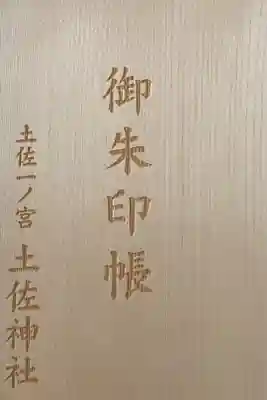 御朱印帳
土佐一ノ宮 土佐神社